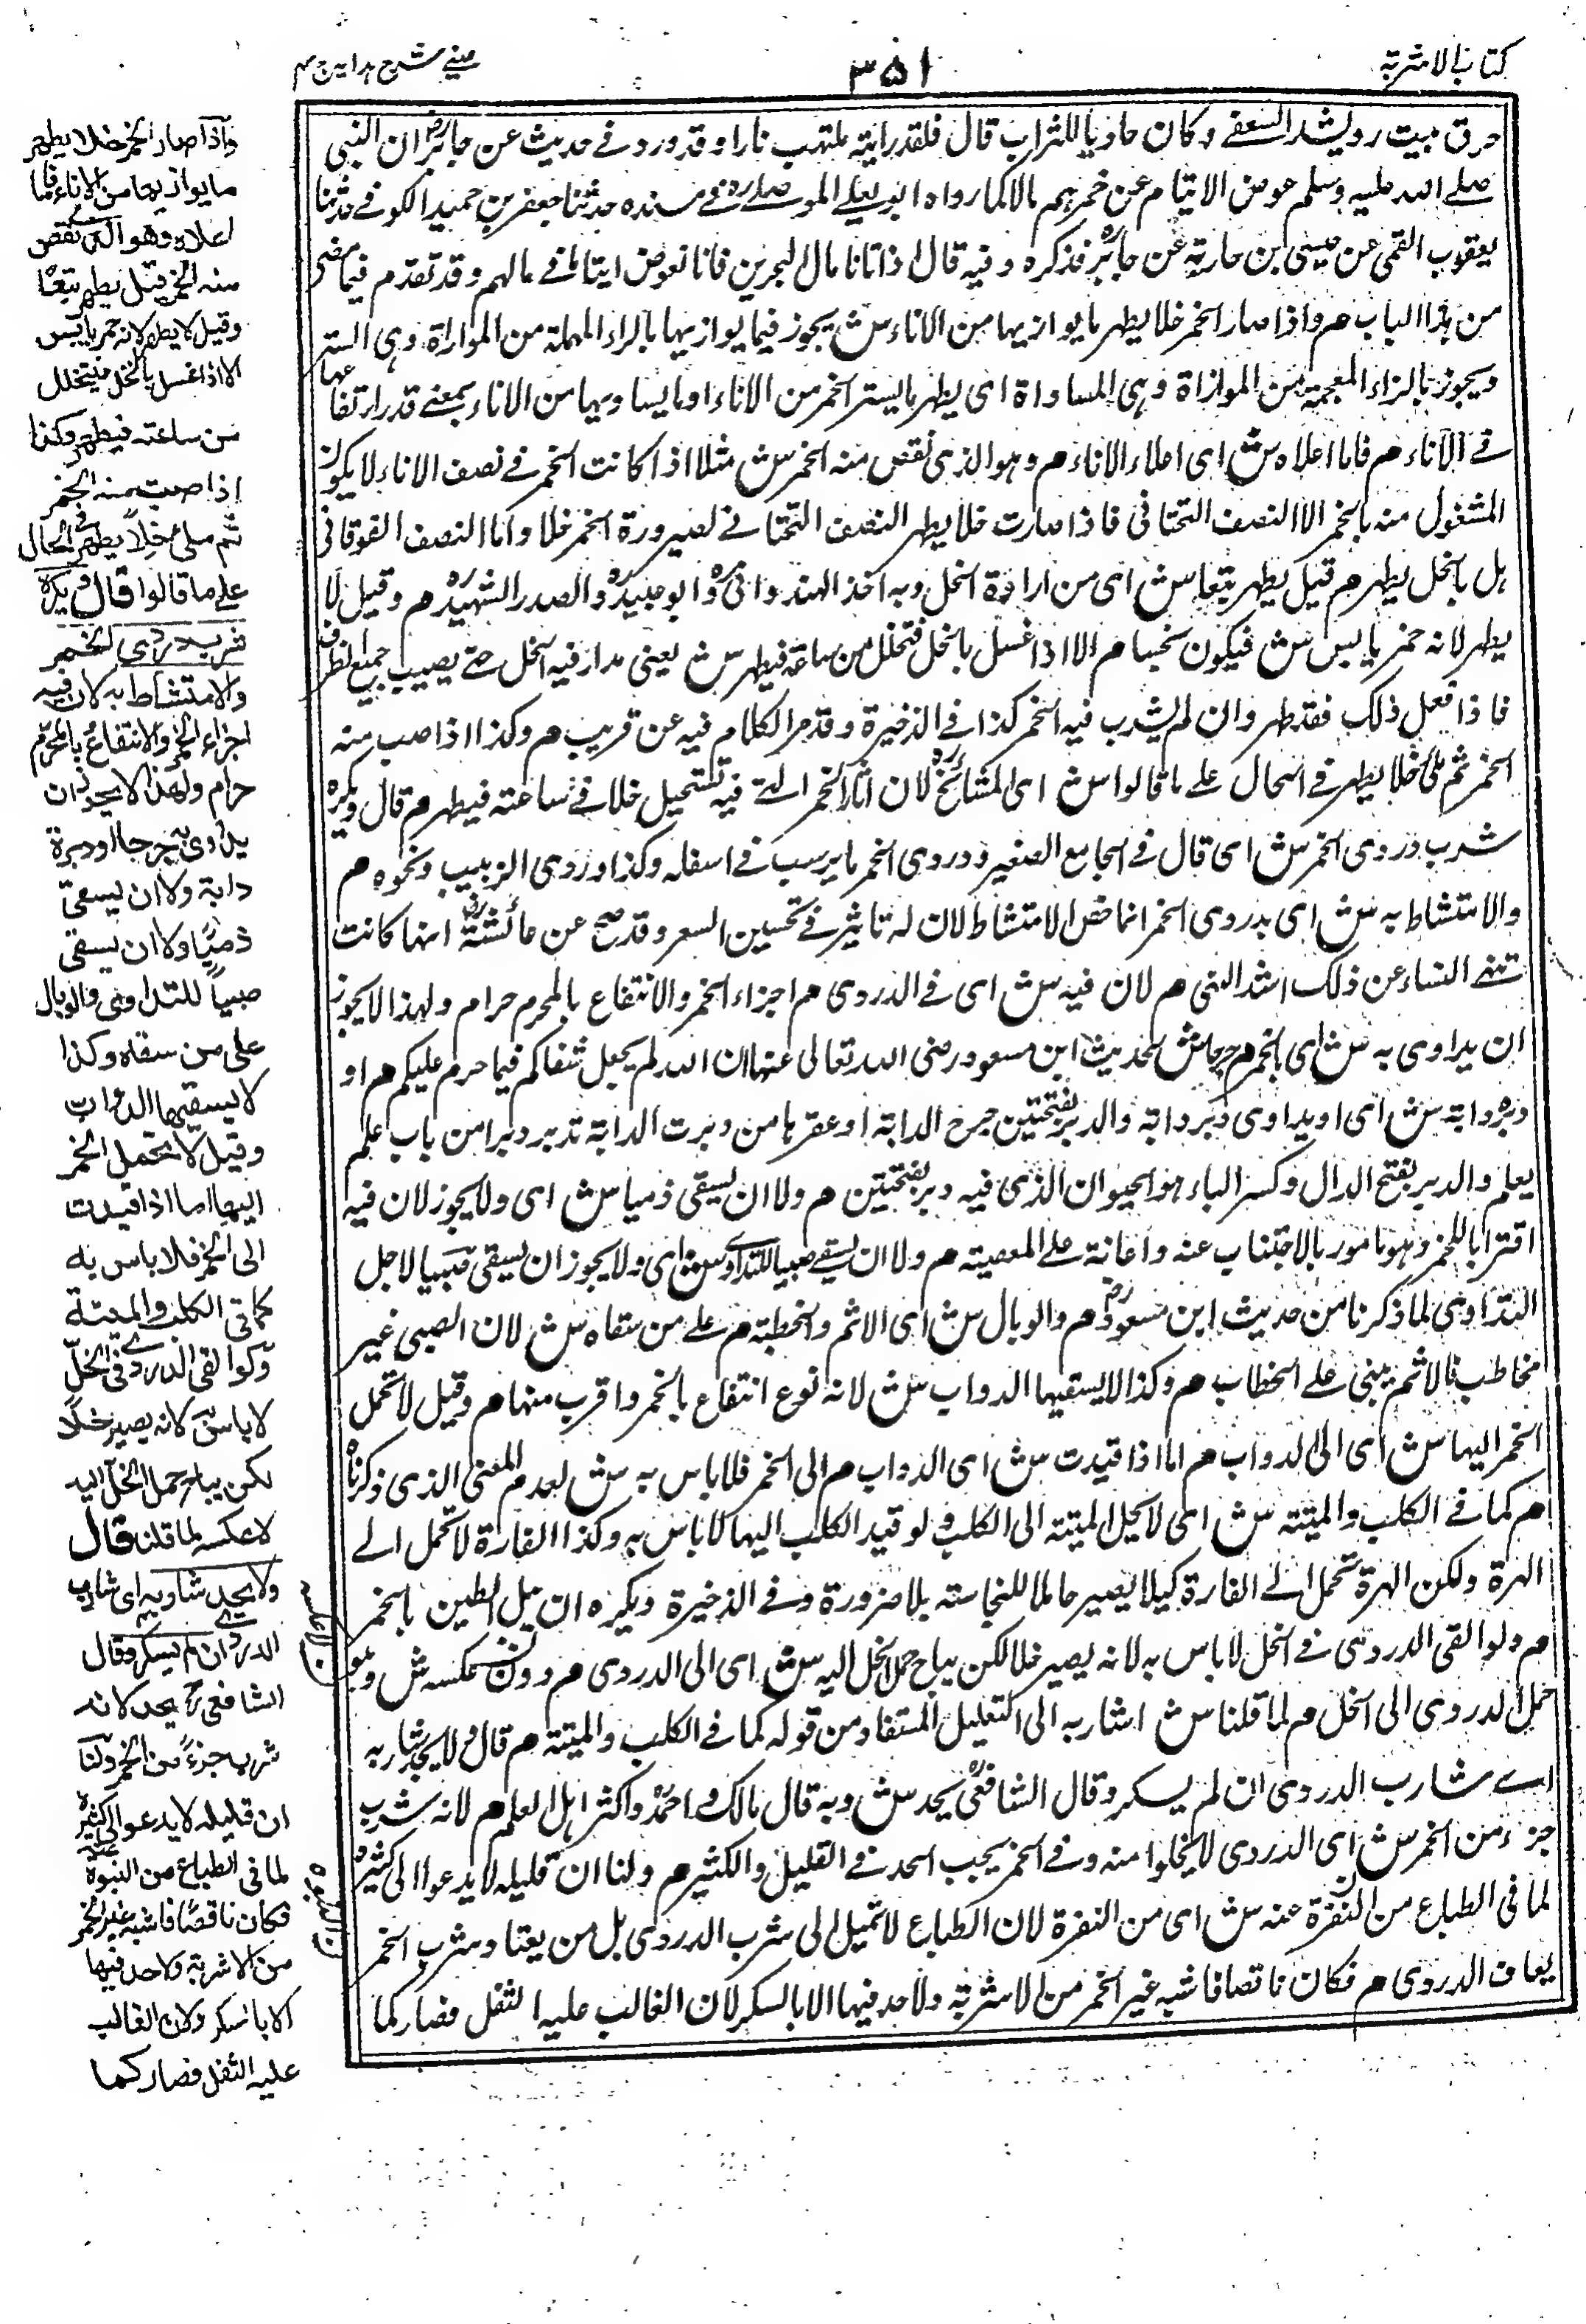 كتاب الاشربة
٣٥١
عينے شرح هدايه ج ٣
حرق بيت رويشد الثقفے وكان حاديا للشراب قال فلقد رايته يلتهب نارا وقد ورد فے حديث عن جابرؓ ان النبى
صلے الله عليه وسلم عوض الايتام عن خمرهم مالا كما رواه ابو يعلے الموصلےؒ فے مسنده حدثنا جعفر بن حميد الكوفے حدثنا
يعقوب القمى عن عيسى بن حارية عن جابرؓ فذكره وفيه قال اذا اتانا مال البحرين فاتانا نعوض ايتامك فے مالهم وقد تقدم فيما مضى
من هذا الباب م واذا صار الخمر خلا يطهر ما يوازيها من الاناء ش يجوز فيما يوازيها بالراء المهملة من المواراة وهى الستر
ويجوز بالزاء المعجمة من الموازاة وهى المساواة اى يطهر ما يستر الخمر من الاناء او ما يساويها من الاناء بمعنے قدر ارتفاعها
فے الاناء م فاما اعلاه ش اى اعلاء الاناء م وهو الذى نقص منه الخمر ش مثلا اذا كانت الخمر فے نصف الاناء لا يكون
المشغول منه بالخمر الا النصف التحتانى فاذا صارت خلا يطهر النصف التحتانے لصيرورة الخمر خلا واما النصف الفوقانى
هل بالخل يطهر م قيل يطهر تبعا ش اى من ارادة الخل وبه اخذ الهندوانىؒ وابو عبيدؒ والصدر الشهيدؒ م وقيل لا
يطهر لانه خمر يابس ش فيكون نجسا م الا اذا غسل بالخل فتخلل من ساعته فيطهر ش يعنى مدار فيه الخل حتے يصيب جميع اطرافه
فاذا فعل ذلك فقد طهر وان لم يشرب فيه الخمر كذا فے الذخيرة وقد مر الكلام فيه عن قريب م وكذا اذا صب منه
الخمر ثم ملئ خلا يطهر فے الحال علے ما قالوا ش اى المشائخؒ لان اثار الخمر التے فيه تستحيل خلا فے ساعته فيطهر م قال ويكره
شرب دردى الخمر ش اى قال فے الجامع الصغير ودردى الخمر ما يرسب فے اسفله وكذا دردى الزبيب ونحوه م
والامتشاط به ش اى بدردى الخمر انما خص الامتشاط لان له تاثير فے تحسين الشعر وقد صح عن عائشةؓ انها كانت
تنهے النساء عن ذلك اشد النهى م لان فيه ش اى فے الدردى م اجزاء الخمر والانتفاع بالمحرم حرام ولهذا لا يجوز
ان يداوى به ش اى بالخمر م جرحا ش لحديث ابن مسعود رضى الله تعالى عنها ان الله لم يجعل شفاكم فيما حرم عليكم م او
دبرة دابة ش اى او يداوى دبر دابة والدبر بفتحتين جرح الدابة او عقرها من دبرت الدابة تدبر دبرا من باب علم
يعلم والدبر بفتح الدال وكسر الباء هو الحيوان الذى فيه دبر بفتحتين م ولا ان يسقى ذميا ش اى ولا يجوز لان فيه
اقترابا للخمر وهو مامور بالاجتناب عنه واعانة علے المعصية م ولا ان يسقے صبيا للتداوے ش اى ولا يجوز ان يسقى صبيا لاجل
التداوى لما ذكرنا من حديث ابن مسعودؓ م والوبال ش اى الاثم والخطية م علے من سقاه ش لان الصبى غير
مخاطب فالاثم يبنى علے الخطاب م وكذا لا يسقيها الدواب ش لانه نوع انتفاع بالخمر واقرب منها م وقيل لا تحمل
الخمر اليها ش اى الى الدواب م اما اذا قيدت ش اى الدواب م الى الخمر فلا باس به ش لعدم المعنى الذى ذكرنا
م كما فے الكلب والميتة ش اى لا يحل الميتة الى الكلب ولو قيد الكلب اليها لا باس به وكذا الفارة لا تحمل الے
الهرة ولكن الهرة تحمل الے الفارة كيلا يصير حاملا للنجاسة بلا ضرورة وفے الذخيرة ويكره ان يبل الطين بالخمر
م ولو القى الدردى فے الخل لا باس به لانه يصير خلا لكن يباح حمل الخل اليه ش اى الى الدردى م دون عكسه ش وهو
حمل الدردى الى الخل م لما قلنا ش اشار به الى التعليل المستفاد من قوله كما فے الكلب والميتة م قال ولا يحد شاربه
اے شارب الدردى ان لم يسكر وقال الشافعىؒ يحد ش وبه قال مالكؒ واحمدؒ واكثر اهل العلم م لانه شرب
جزء من الخمر ش اى الدردى لا يخلوا منه وفے الخمر يجب الحد فے القليل والكثير م ولنا ان قليله لا يدعوا الى كثيره
لما فى الطباع من النفرة عنه ش اى من النفرة لان الطباع لا تميل الى شرب الدردى بل من يعتاد شرب الخمر
يعاف الدردى م فكان ناقصا فاشبه غير الخمر من الاشربة ولا حد فيها الا بالسكر لان الغالب عليه الثفل فصار كما
واذا صار الخمر خلا يطهر
ما يوازيها من الاناء فاما
اعلاه وهو الذى نقص
منه الخمر قيل يطهر تبعًا
وقيل لا يطهر لانه خمر يابس
الا اذا غسل بالخل فيتخلل
من ساعته فيطهر وكذا
اذا صب منه الخمر
ثم ملئ خلاً يطهر فى الحال
علے ما قالوا قال ويكره
شرب دردى الخمر
والامتشاط به لان فيه
اجزاء الخمر والانتفاع بالمحرّم
حرام ولهذا لا يجوز ان
يداوى به جرحا او دبرة
دابة ولا ان يسقى
ذميًا ولا ان يسقى
صبياً للتداوى والوبال
على من سقاه وكذا
لا يسقيها الدواب
وقيل لا تحمل الخمر
اليها اما اذا قيدت
الى الخمر فلا باس به
كما فى الكلب والميتة
ولو القى الدردے فى الخلّ
لا باس به لانه يصير خلًا
لكن يباح حمل الخل اليه
لا عكسه لما قلنا قال
ولا يحد شاربه اى شارب
الدردے ان لم يسكر وقال
الشافعىؒ يحد لانه
شرب جزءً من الخمر ولنا
ان قليله لا يدعو الى كثيره
لما فى الطباع من النبوة عنه
فكان ناقصًا فاشبه غير الخمر
من الاشربة ولا حد فيها
الا بالسكر ولان الغالب
عليه الثفل فصار كما